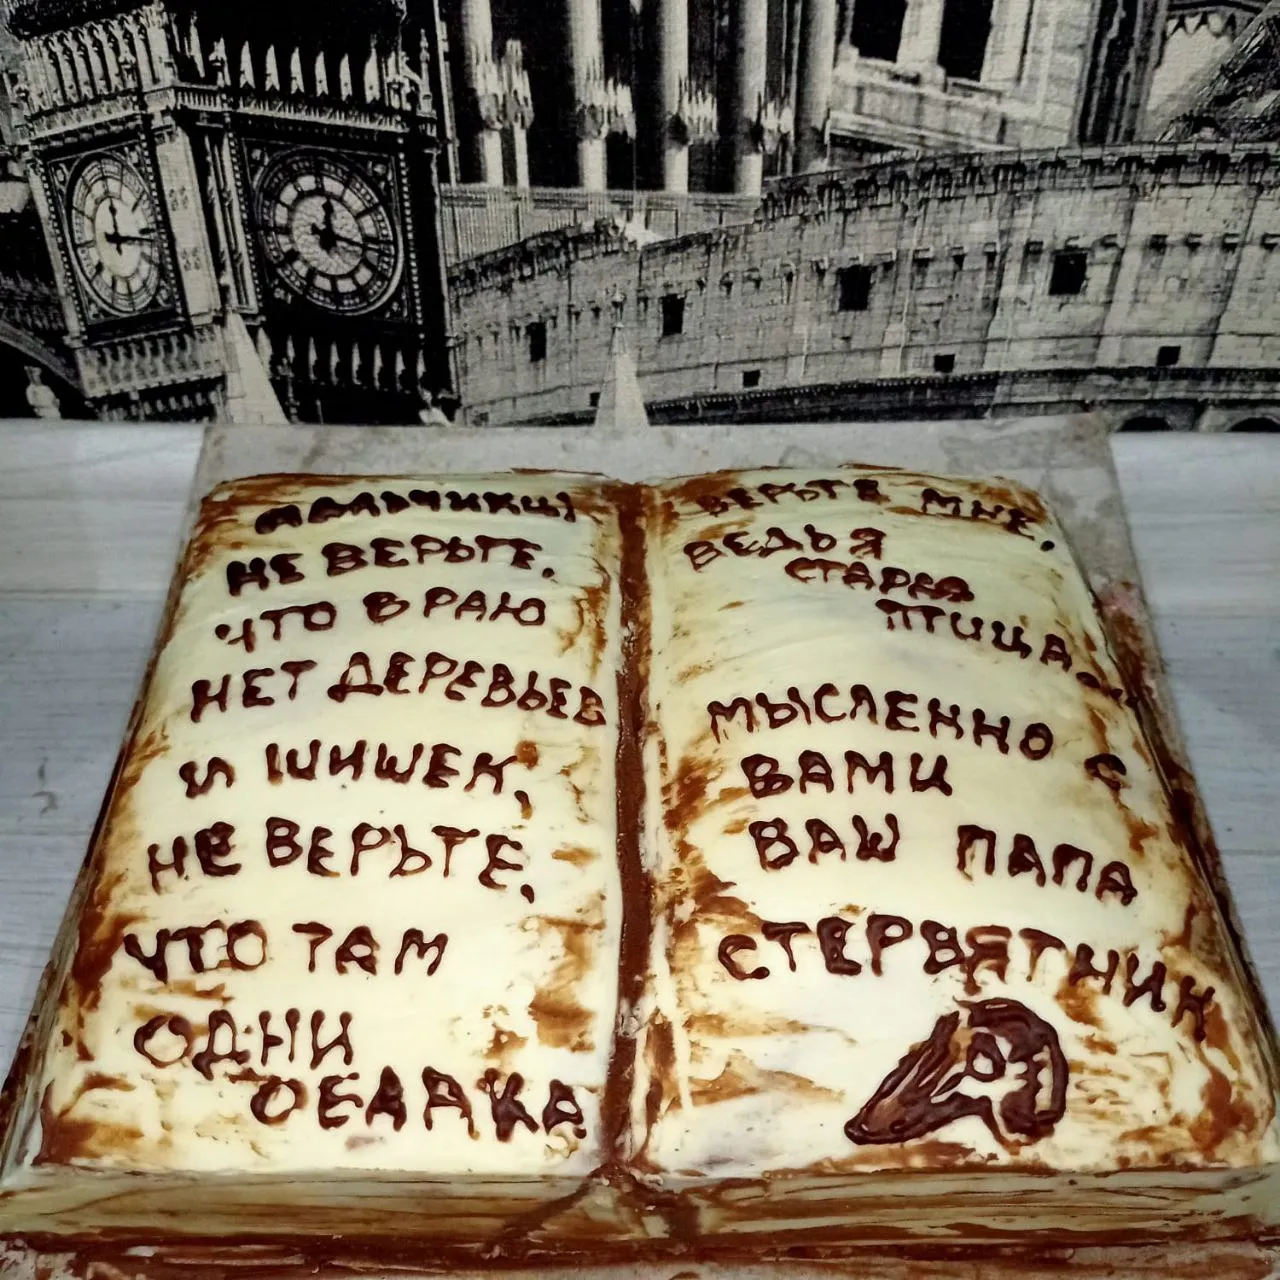 МАЛЬЧИКИ!
НЕ ВЕРЬТЕ,
ЧТО В РАЮ
НЕТ ДЕРЕВЬЕВ
И ШИШЕК,
НЕ ВЕРЬТЕ,
ЧТО ТАМ
ОДНИ
ОБЛАКА
ВЕРЬТЕ МНЕ,
ВЕДЬ Я
СТАРАЯ
ПТИЦА...
МЫСЛЕННО С
ВАМИ
ВАШ ПАПА
СТЕРВЯТНИК